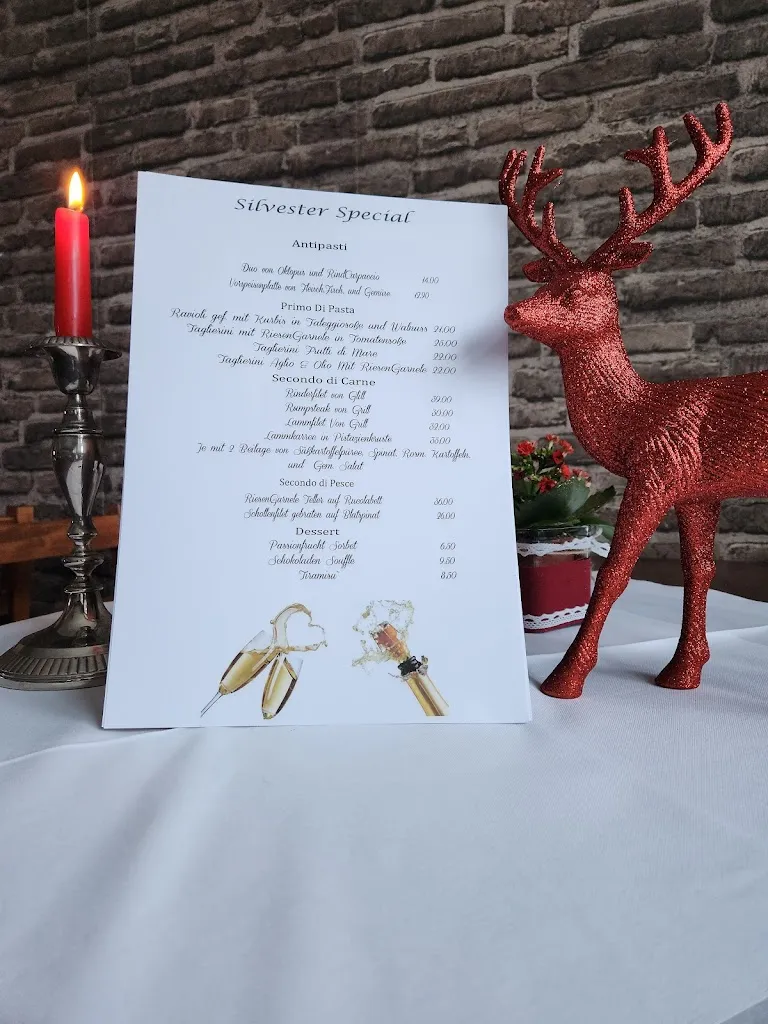 Silvester Special
Antipasti
Duo von Oktopus und RindCarpaccio 14.00
Vorspeisenplatte von Fleisch, Fisch, und Gemüse
Primo Di Pasta
Ravioli gef. mit Kürbis in Taleggiosoße und Walnuss 21.00
Taglierini mit RiesenGarnele in Tomatensoße 25.00
Taglierini Frutti di Mare 22.00
Taglierini Aglio & Olio Mit RiesenGarnele 22.00
Secondo di Carne
Rinderfilet von Grill
Rumpsteak von Grill 30.00
Lammfilet Von Grill
Lammkarree in Pistazienkruste
Je mit 2 Beilage von Süßkartoffelpüree, Spinat, Rosm. Kartoffeln,
und Gem. Salat
Secondo di Pesce
RiesenGarnele Teller auf Rucolabett
Schollenfilet gebraten auf Blatspinat 26.00
Dessert
Passionfrucht Sorbet 6.50
Schokoladen Souffle 9.50
Tiramisu' 8.50